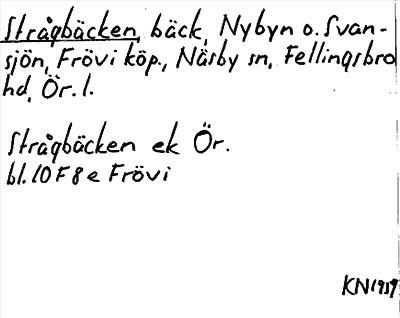 Strågbäcken, bäck, Nybyn o. Svan-
sjön, Frövi köp., Näsby sn, Fellingsbro
hd, Ör. l.
Strågbäcken ek Ör.
bl. 10 F 8 e Frövi
KN 1959